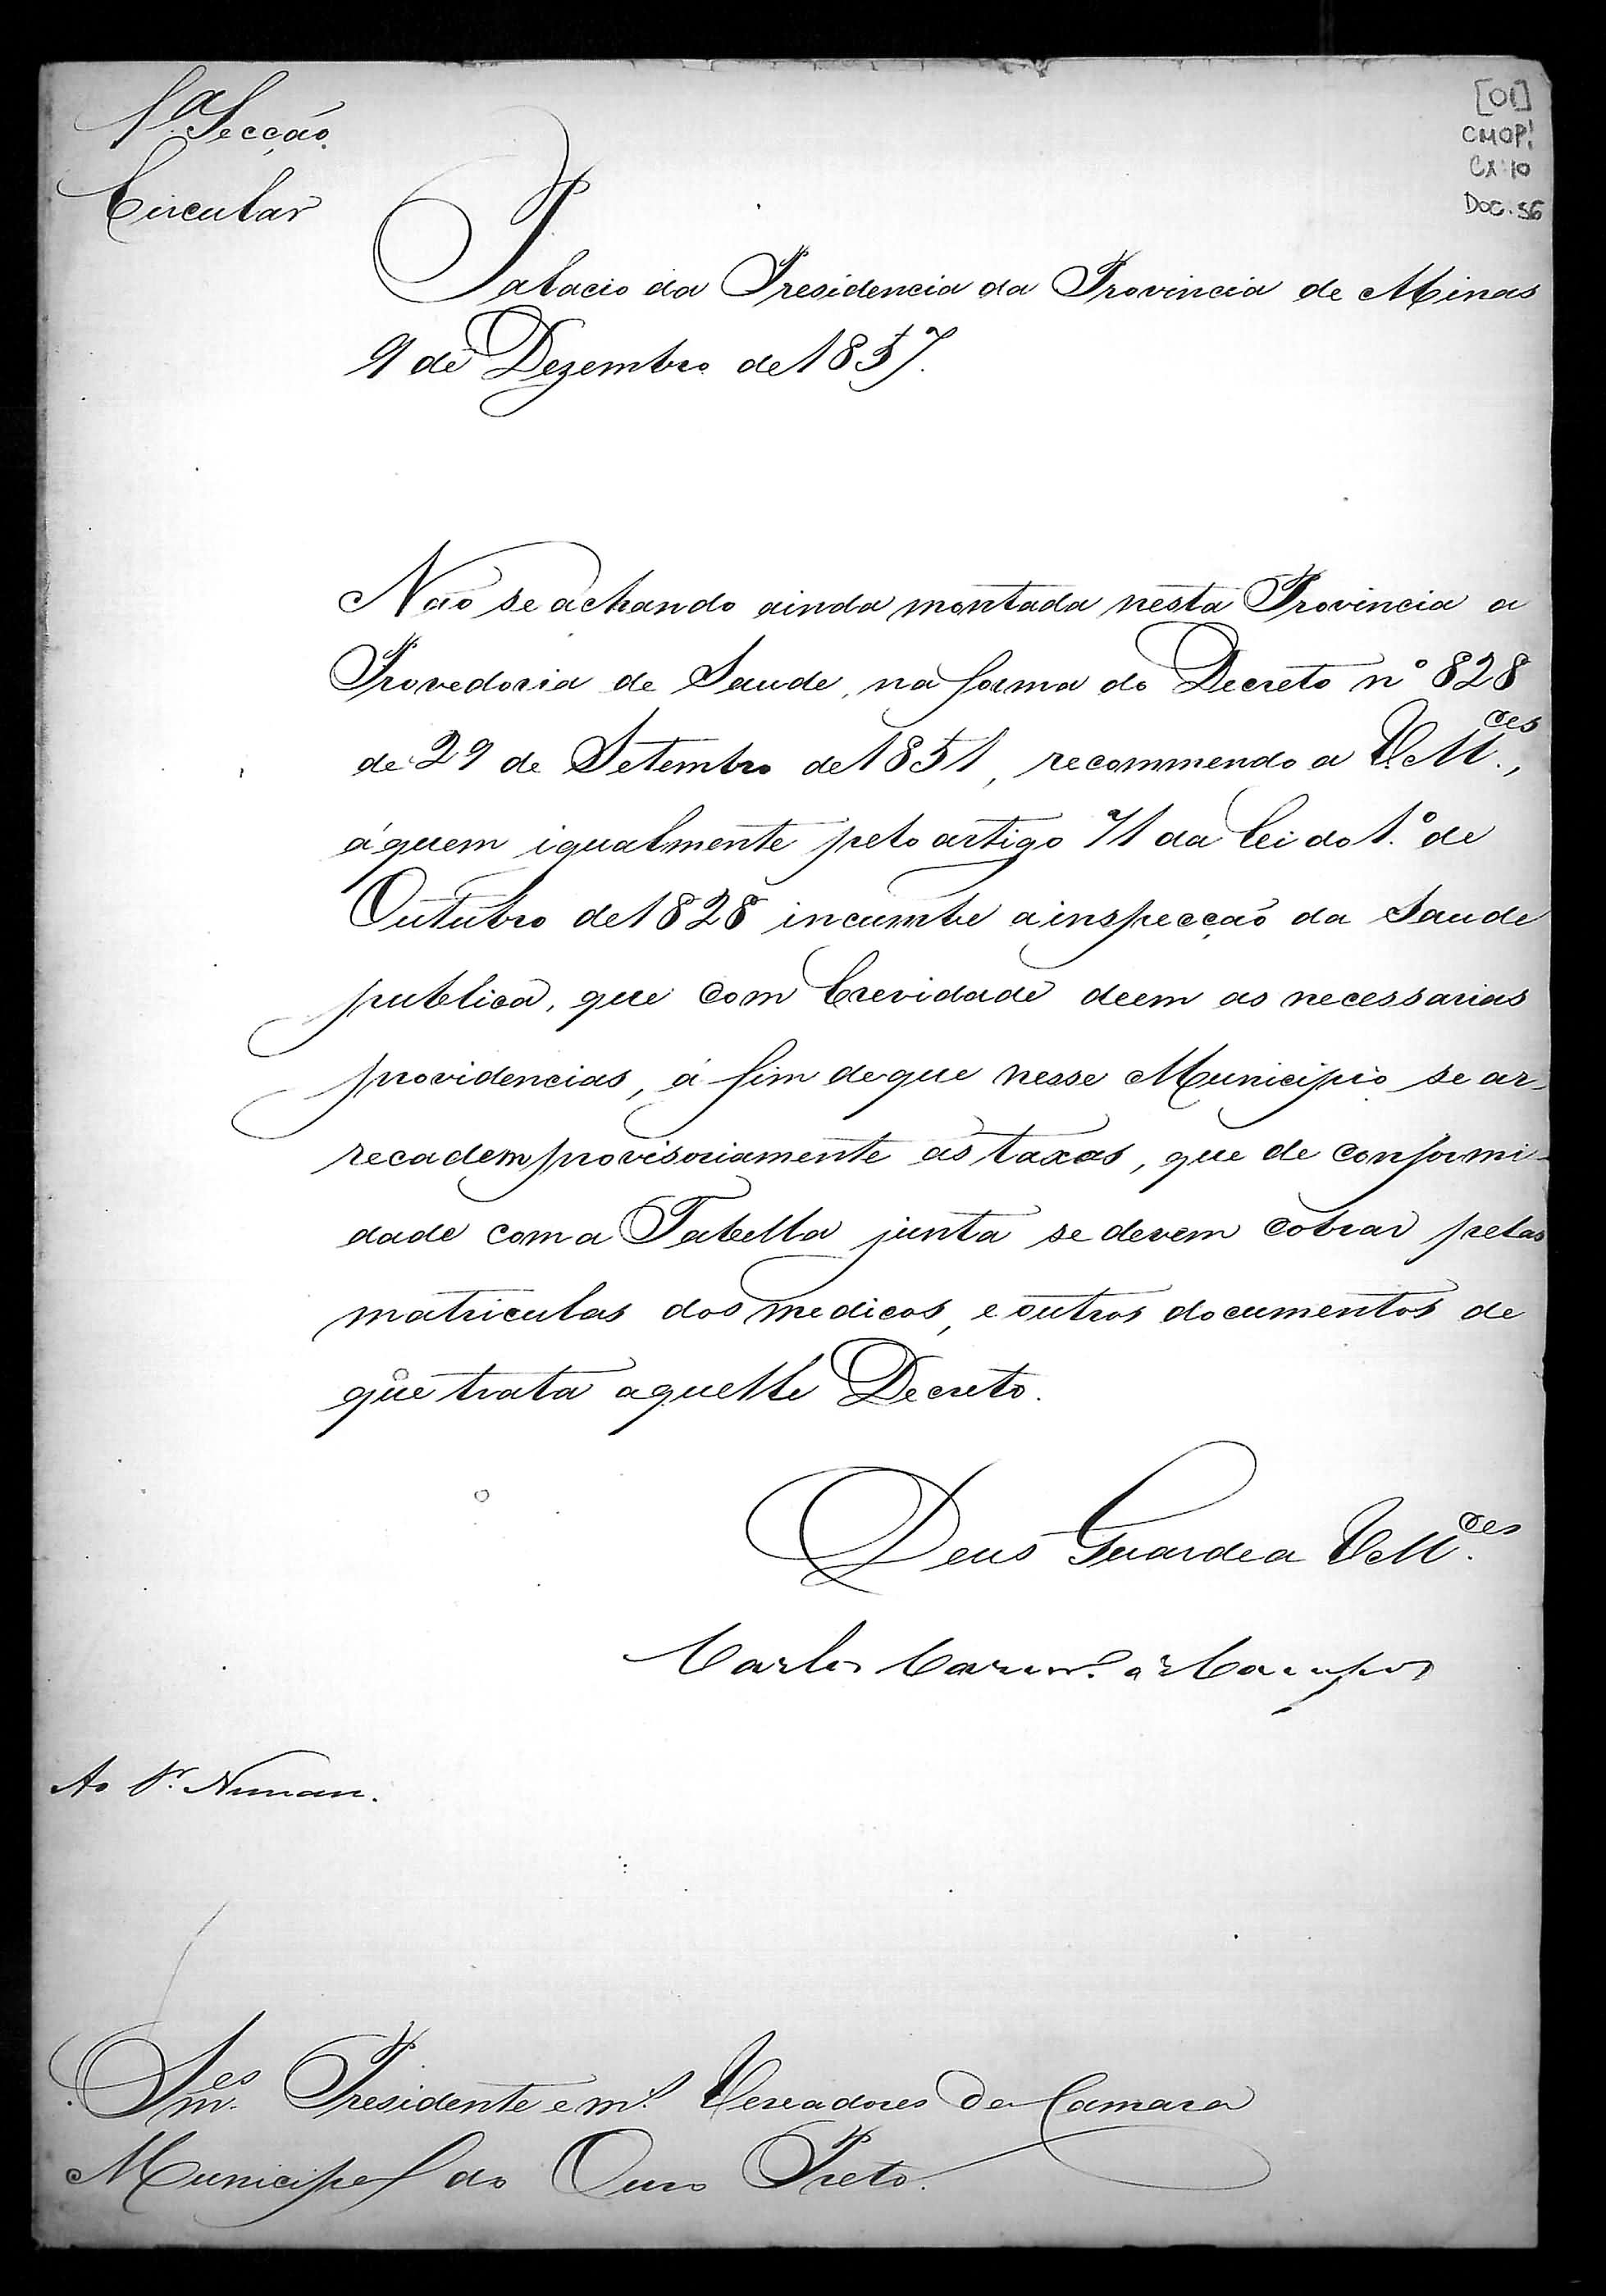 1.ª Secção
Circular
[01]
CMOP!
CX: 10
DOC. 56
Palacio da Presidencia da Provincia de Minas
9 de Dezembro de 1857.
Não se achando ainda montada nesta Provincia a
Provedoria de Saude, na forma do Decreto nº 828
de 29 de Setembro de 1851, recommendo a V. M.ces,
á quem igualmente pelo artigo 71 da Lei do 1.º de
Outubro de 1828 incumbe a inspecção da Saude
publica, que com brevidade deem as necessarias
providencias, á fim de que nesse Municipio se ar-
recadem provisoriamente as taxas, que de conformi-
dade com a Tabella junta se devem cobrar pelas
matriculas dos medicos, e outros documentos de
que trata aquelle Decreto.
Deus Guarde a V M.ces
Carlos Carn.º de Campos
Ao Sr.
Snr.es Presidente e m.s Vereadores da Camara
Municipal do Ouro Preto.